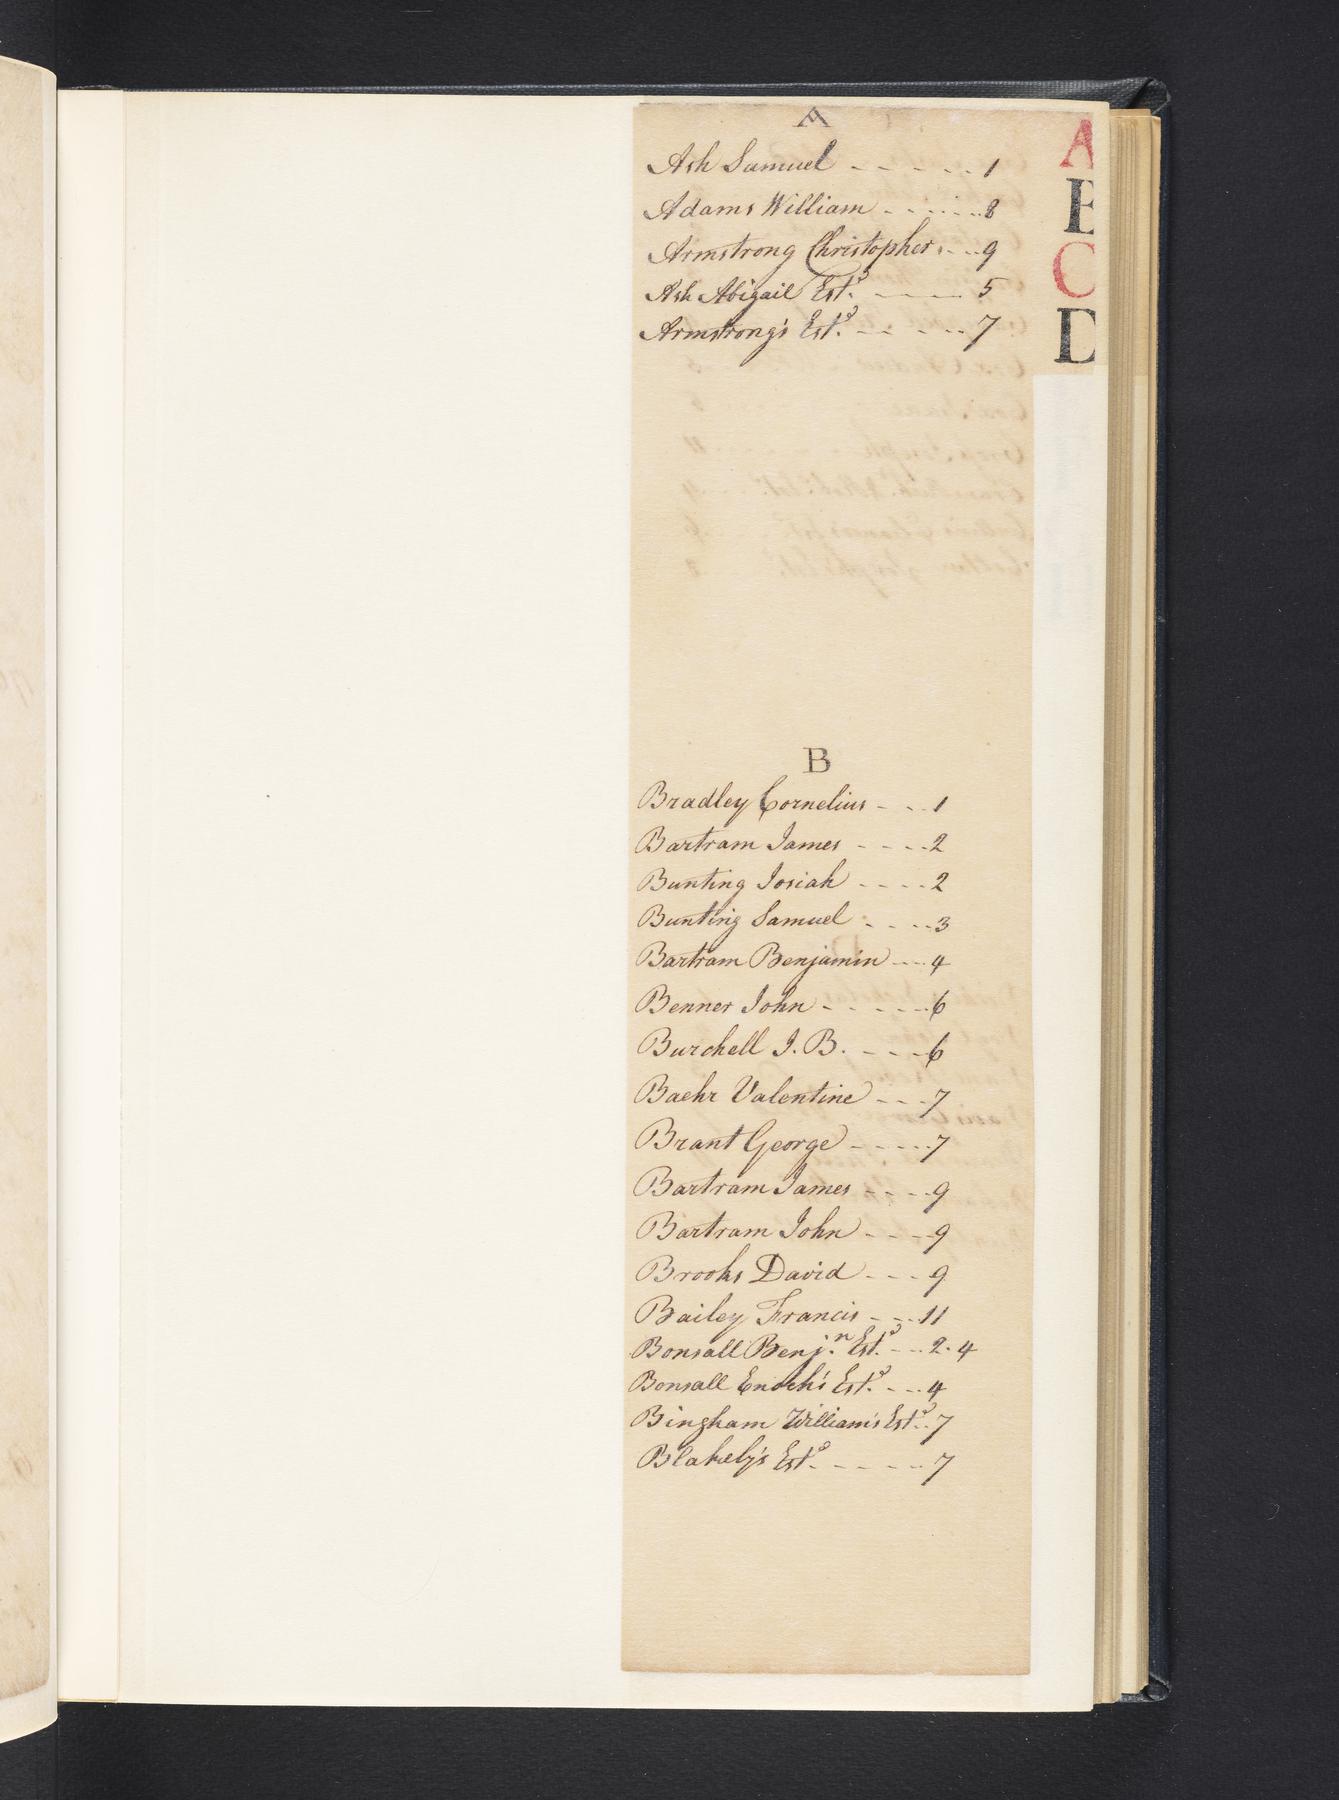 A
Ash Samuel - - - - - 1
Adams William - - - - - 8
Armstrong Christopher - - - 9
Ash Abigail Est.ᵈ - - - - 5
Armstrong's Est.ᵈ - - - - - 7
B
Bradley Cornelius - - - 1
Bartram James - - - - 2
Bunting Josiah - - - - 2
Bunting Samuel - - - - 3
Bartram Benjamin - - - 4
Benner John - - - - - - 6
Burchell J. B. - - - - 6
Baehr Valentine - - - 7
Brant George - - - - - 7
Bartram James - - - - 9
Bartram John - - - - 9
Brooks David - - - 9
Bailey Francis - - - 11
Bonsall Benj.ⁿ Est.ᵈ - - - 2. 4
Bonsall Enoch's Est.ᵈ - - - 4
Bingham William's Est.ᵈ - - 7
Blakely's Est.ᵈ - - - - - 7
A
B
C
D